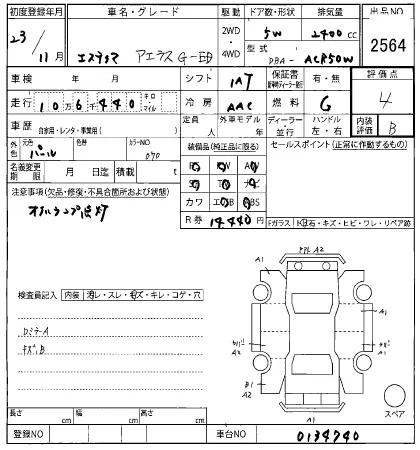 初度登録年月 車名・グレード 駆動 ドア数・形状 排気量 出品NO
23/11月 エスティマ アエラス G-Ed 2WD 4WD 5W 2400cc 2564
型式 DBA-ACR50W
車検 年 月 シフト IAT 保証書 有・無 評価点
走行 10万6千440 キロ マイル 冷房 AAC 燃料 G 4
車歴 自家用・レンタ・事業用( ) 定員 人 外車モデル 年 ディーラー 並行 ハンドル 左・右 内装評価 B
外色 元色 パール 色替 カラーNO 070 装備品(純正品に限る) セールスポイント(正常に作動するもの)
名義変更期限 月 日迄 積載 t
注意事項(欠品・修復・不具合箇所および状態)
オイルランプ点灯
カワ エAB ABS
R券 14,440円 Fガラス 飛石・キズ・ヒビ・ワレ・リペア跡
A2
A1
検査員記入 内装 汚レ・スレ・キズ・キレ・コゲ・穴
A1
A1
キズB
A2
B1
A2
A1
スペア
長さ cm 幅 cm 高さ cm
登録NO 車台NO 0134740